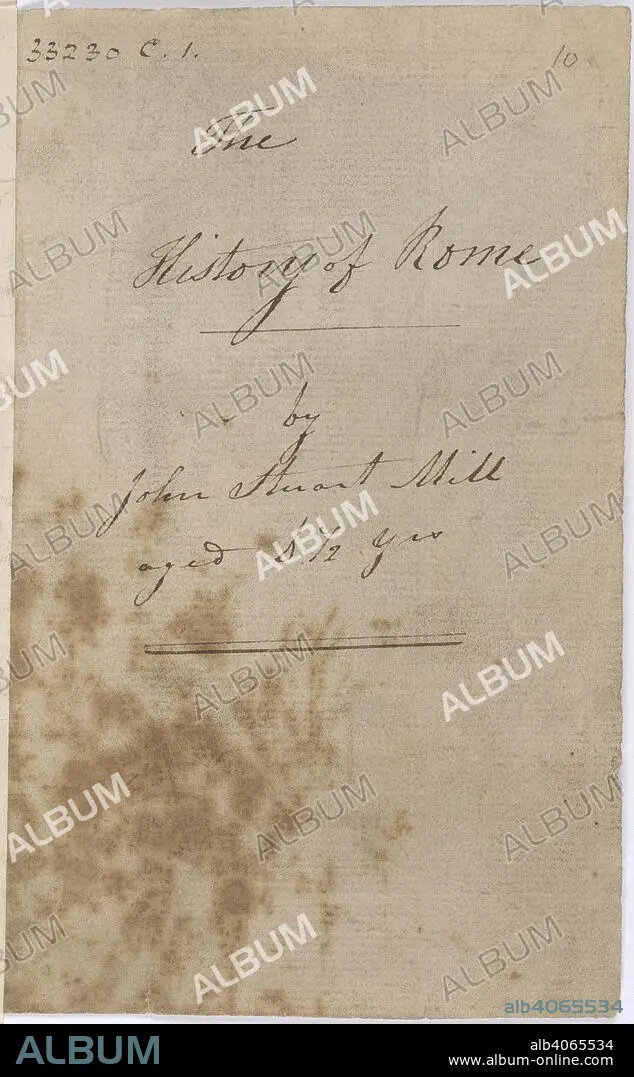 33230 C. 1.
10
The
History of Rome
by
John Stuart Mill
aged yrs
alb4065534
ALBUM
alb4065534
www.album-online.com